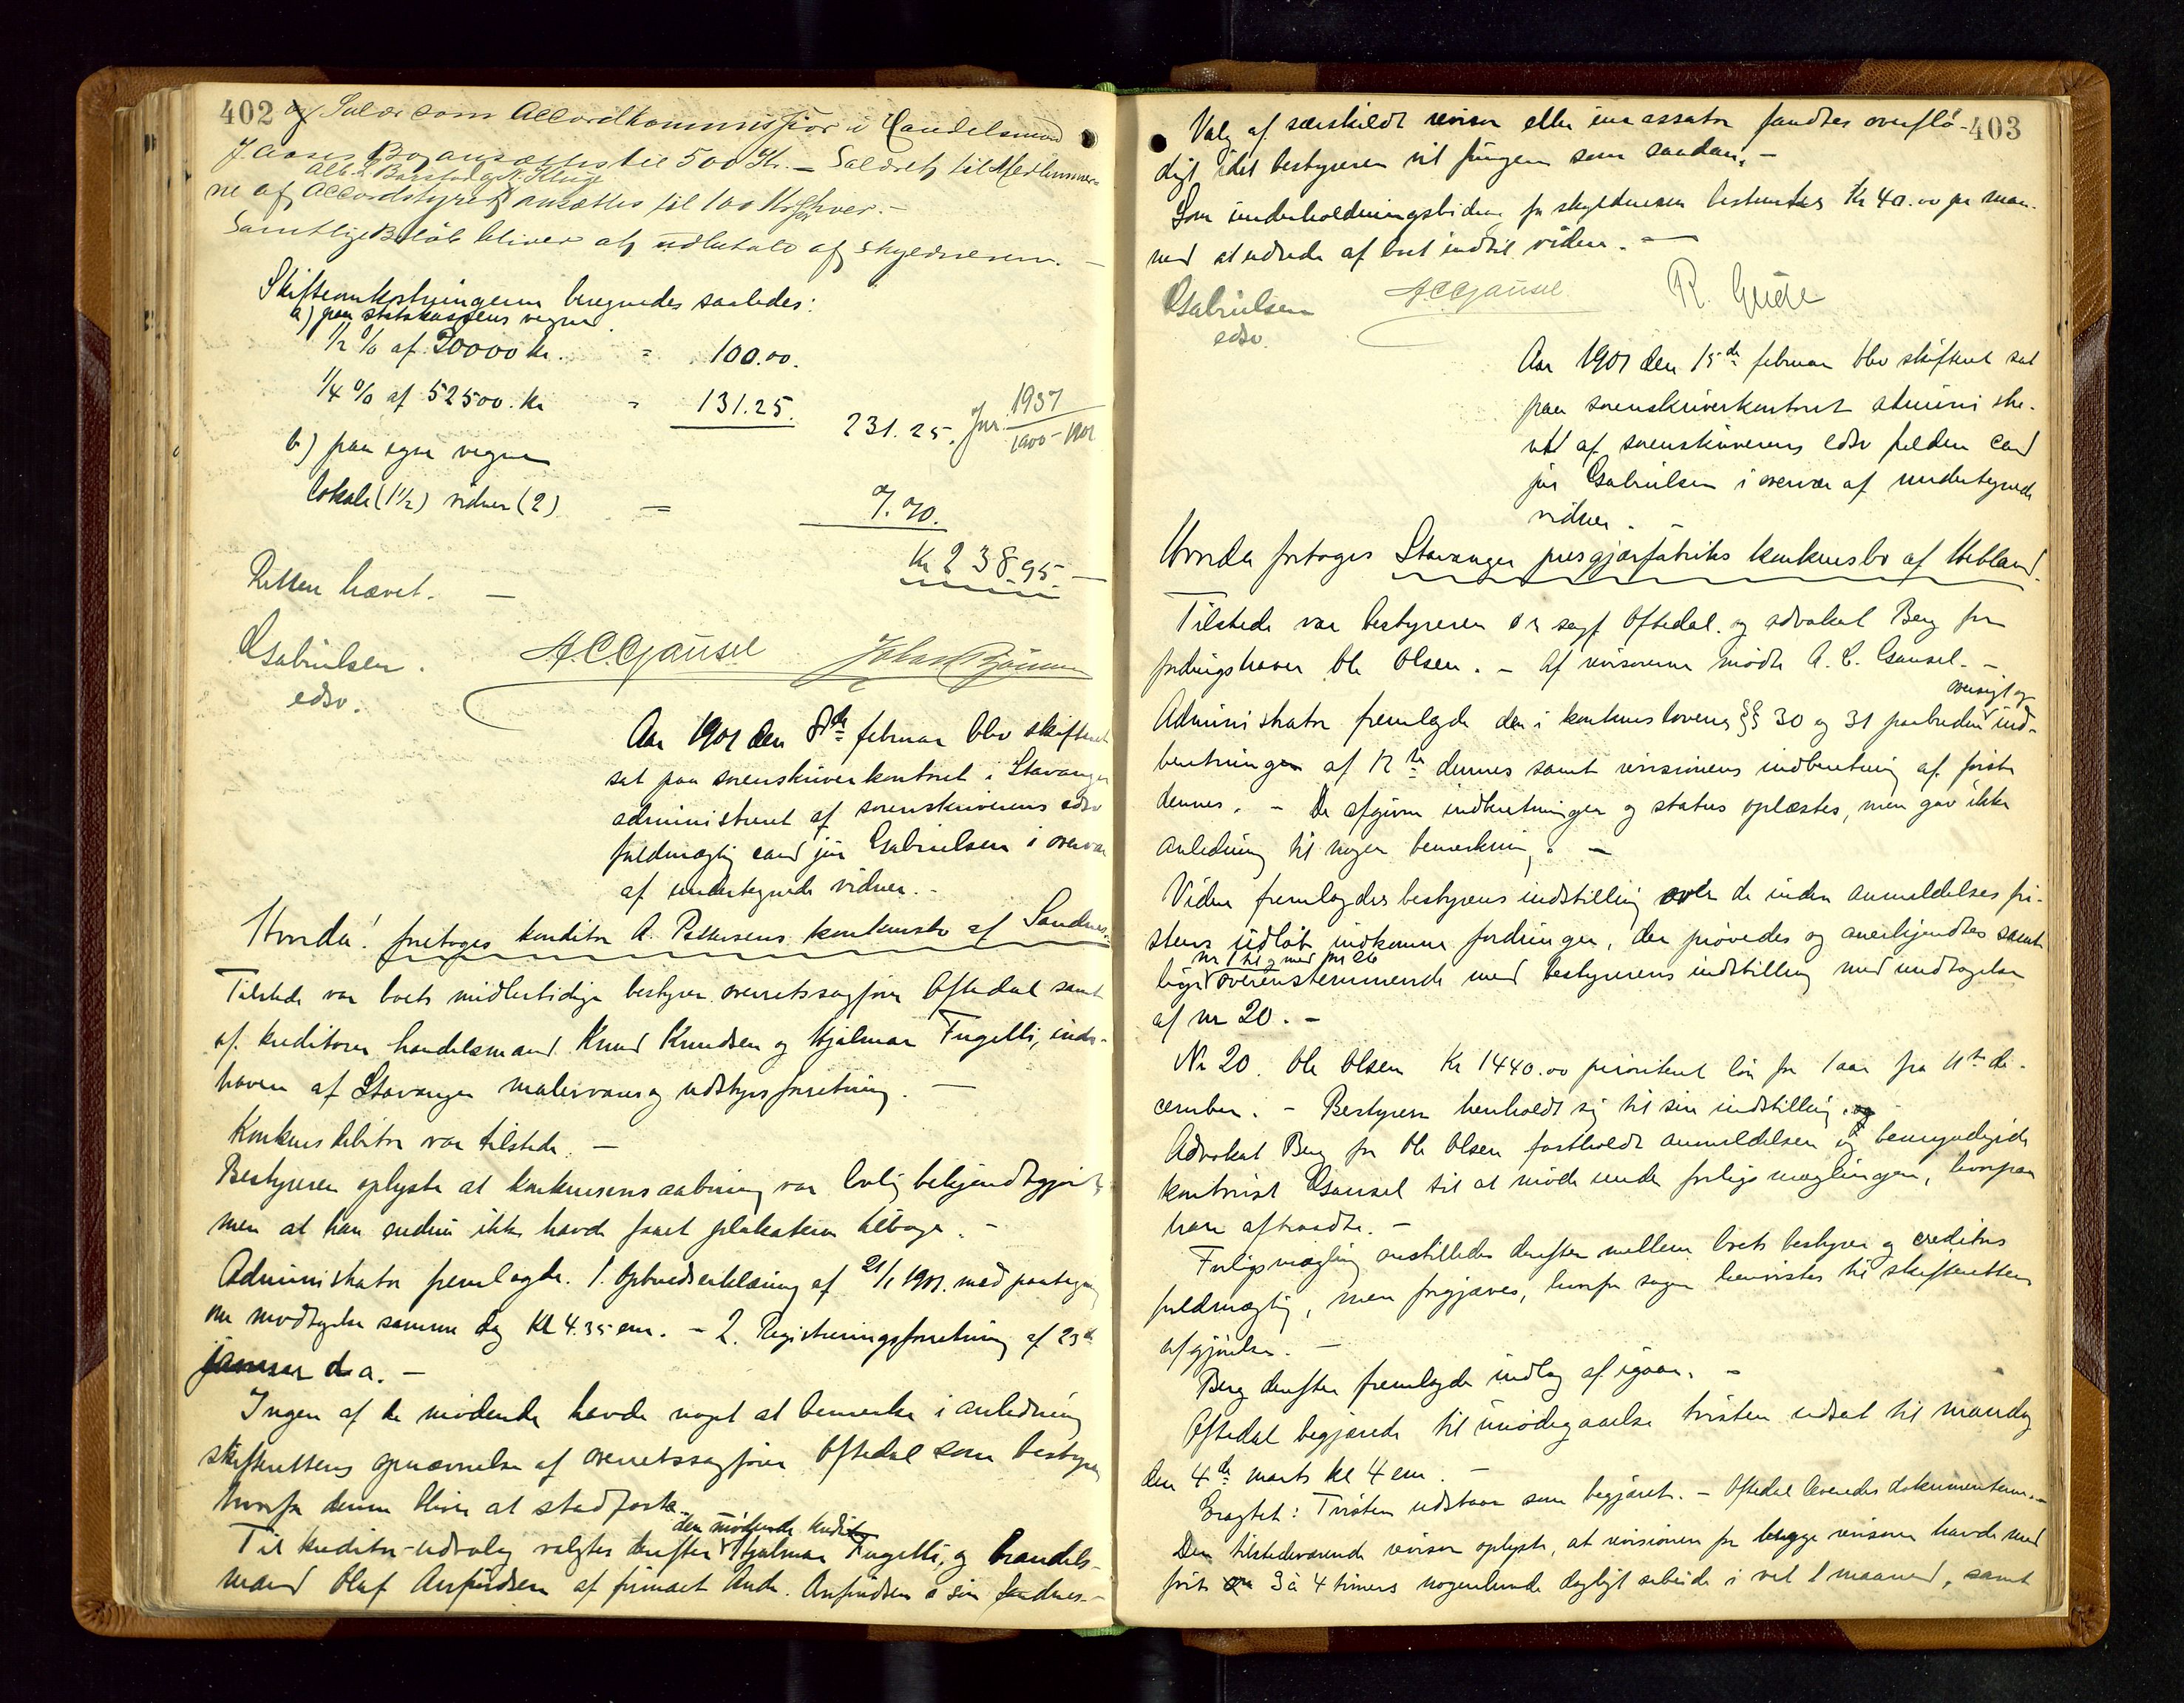 402
og Salær som Accordkommissær i Handelsmand
J. Aases Bo ansættes til 500 Kr. – Salæret til Medlemmer-
Alb. L. Barstad og N. Kluge
ne af Accordstyret ansættes til 100 Kr hver. –
Samtlige Beløb bliver at udbetale af skyldneren. –
Skifteomkostningerne beregnedes saaledes:
a) paa statskassens vegne
1/2 % af 20000 kr. = 100.00.
1/4 % af 52500. Kr = 131.25. 231.25. Jnr. 1937
1900-1901
b) paa egne vegne
lokale (1 1/2) vidner (2) = 7.70.
Kr 238.95. –
Retten hævet. –
Gabrielsen.
edsv.
A.C. Gausel
Aar 1901 den 8de februar blev skifteret
sat paa sorenskriverkontoret i Stavanger
administreret af sorenskriverens edsv
fuldmægtig cand jur Gabrielsen i overvær
af undertegnede vidner. –
Hvorda! foretoges konditor A. Pettersens konkursbo af Sandnes.
Tilstede var boets midlertidige bestyrer overretssagfører Oftedal samt
af kreditorer handelsmand Knud Knudsen og Hjalmar Fugelli, inde-
haver af Stavanger malervare og udstyrsforretning. –
Konkursdebitor var tilstede. –
Bestyreren oplyste at konkursens aabning var lovlig bekjendtgjort,
men at han endnu ikke havde faaet plakaterne tilbage. –
Administrator fremlagde. 1. Opbudserklæring af 21/1 1901. med paategning
om modtagelse samme dag Kl 4.35 em. – 2. Registreringsforretning af 23de
januar d. a. –
Ingen af de mødende havde noget at bemerke i anledning
skifterettens opnævnelse af overretssagfører Oftedal som bestyrer
hvorfor denne bliver at stadfæste. –
den mødende kreditor
Til kreditor-udvalg valgtes derefter Hjalmar Fugelli, og handels-
mand Oluf Anfindsen af firmaet Andr. Anfindsen & søn Sandnes. –
403
Valg af særskildt revisor eller incassator fandtes overflø-
digt idet bestyreren vil fungere som saadan. –
Som underholdningsbidrag for skyldneren bestemtes Kr 40.00 pr maa-
ned at udrede af boet indtil videre. –
Gabrielsen
edsv.
A.C. Gausel
R. Geide
Aar 1901 den 15de februar blev skifteret sat
paa sorenskriverkontoret administre-
ret af sorenskriverens edsv fuldm cand
jur Gabrielsen i overvær af undertegnede
vidner. –
Hvorda foretoges Stavanger presgjærfabriks konkursbo af Hetland.
Tilstede var bestyreren o r sagf Oftedal. og advokat Berg for
fordringshaver Ole Olsen. – Af revisorerne mødte A. C. Gausel. –
oversigt og
Administrator fremlagde den i konkurslovens §§ 30 og 31 paabudne ind-
beretninger af 12te dennes samt revisionens indberetning af første
dennes. – De afgivne indberetninger og status oplæstes, men gav ikke
anledning til nogen bemerkning. –
Videre fremlagdes bestyrens indstilling over de inden anmeldelsesfri-
stens udløb indkomne fordringer, der prøvedes og anerkjendtes samt-
nr 1 til og med nr 26
lige overensstemmende med bestyrerens indstilling med undtagelse
af nr 20. –
Nr 20. Ole Olsen Kr 1440.00 prioriteret løn for 1 aar fra 11te de-
cember. – Bestyreren henholdt sig til sin indstilling. og
Advokat Berg for Ole Olsen fastholdt anmeldelsen og bemyndigede
kontorist Gausel til at møde under forligsmæglingen, hvorpaa
han aftraadte. –
Forligsmægling anstilledes derefter mellem boets bestyrer og creditors
fuldmægtig, men forgjæves, hvorfor sagen henvistes til skifterettens
afgjørelse. –
Berg derefter fremlagde indlæg af igaar. –
Oftedal begjærede til imødegaaelse tvisten udsat til mandag
den 4de marts kl 4 em. –
Eragtet: Tvisten udstaar som begjæret. – Oftedal leveredes dokumenterne. –
Den tilstedeværende revisor oplyste, at revisionen for begge revisorer havde med
ført 3 à 4 timers nogenlunde dagligt arbeide i vel 1 maaned, samt